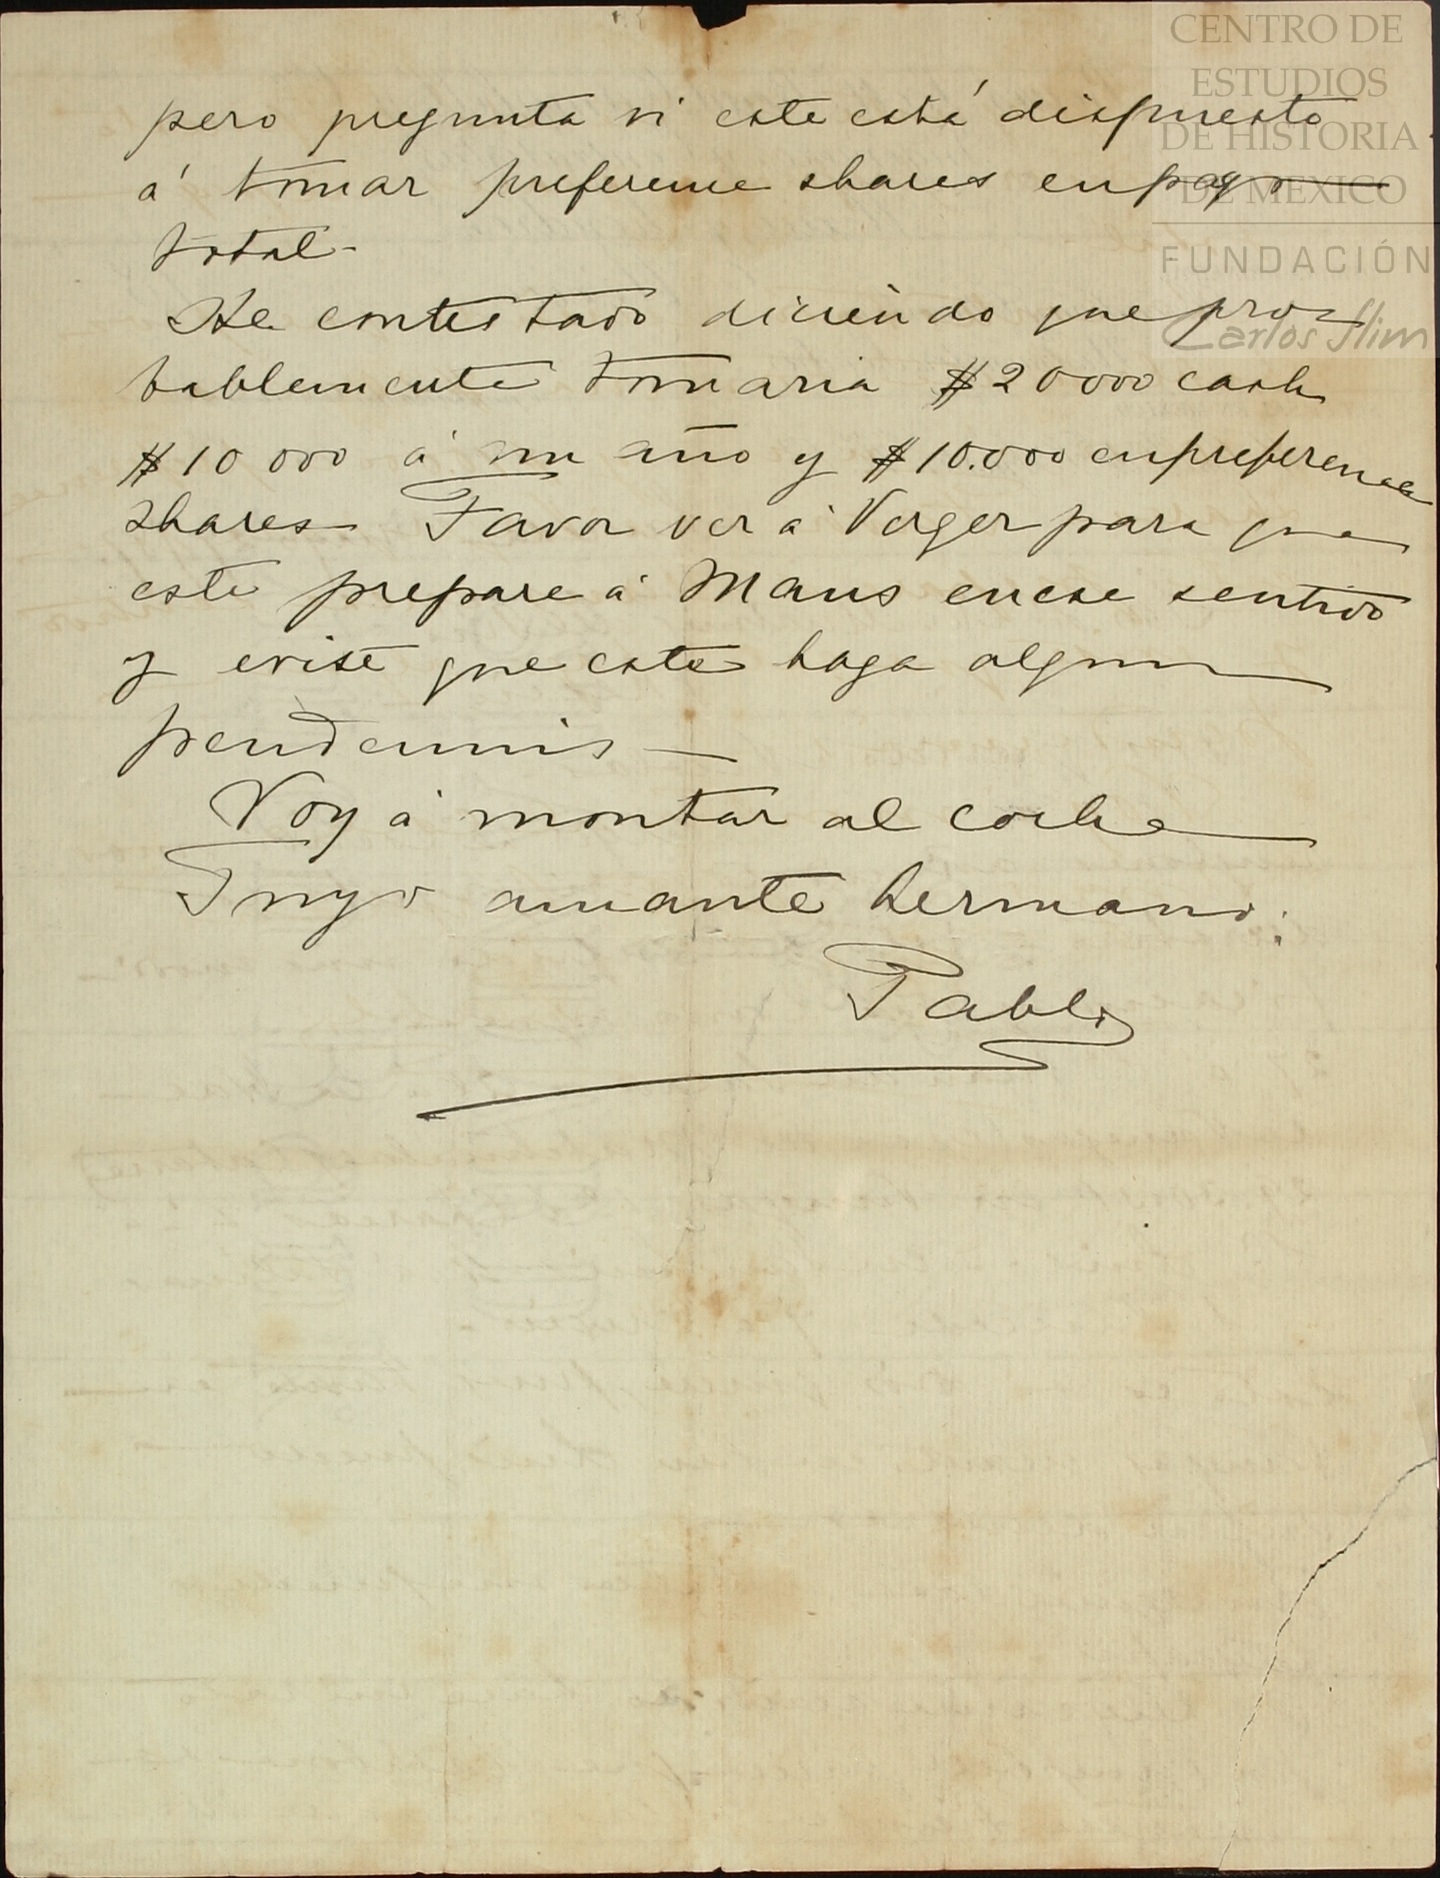 CENTRO DE
ESTUDIOS
DE HISTORIA
DE MEXICO
FUNDACIÓN
Carlos Slim
pero pregunta si este está dispuesto
á tomar preference shares en pago
total-
He contestado diciendo que pro=
bablemente tomaria $20000 cash
$10 000 á un año y $10.000 en preference
shares Favor ver á Verger para que
este prepare á Maus en ese sentido
y evite que este haga algun
pendennis —
Voy á montar al coche
Tuyo amante hermano:
Pablo